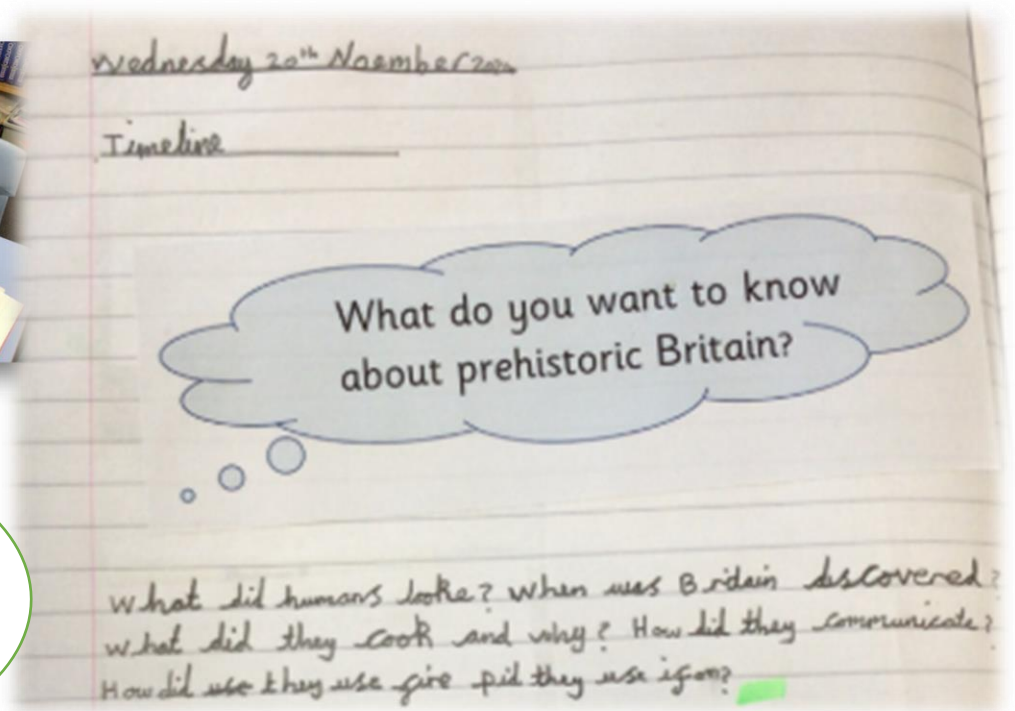 Wednesday 20th Noember 2024
Timeline
What do you want to know
about prehistoric Britain?
What did humans looke? When was Bridain discovered?
What did they cook and why? How did they communicate?
How did use they use fire pid they use if on?